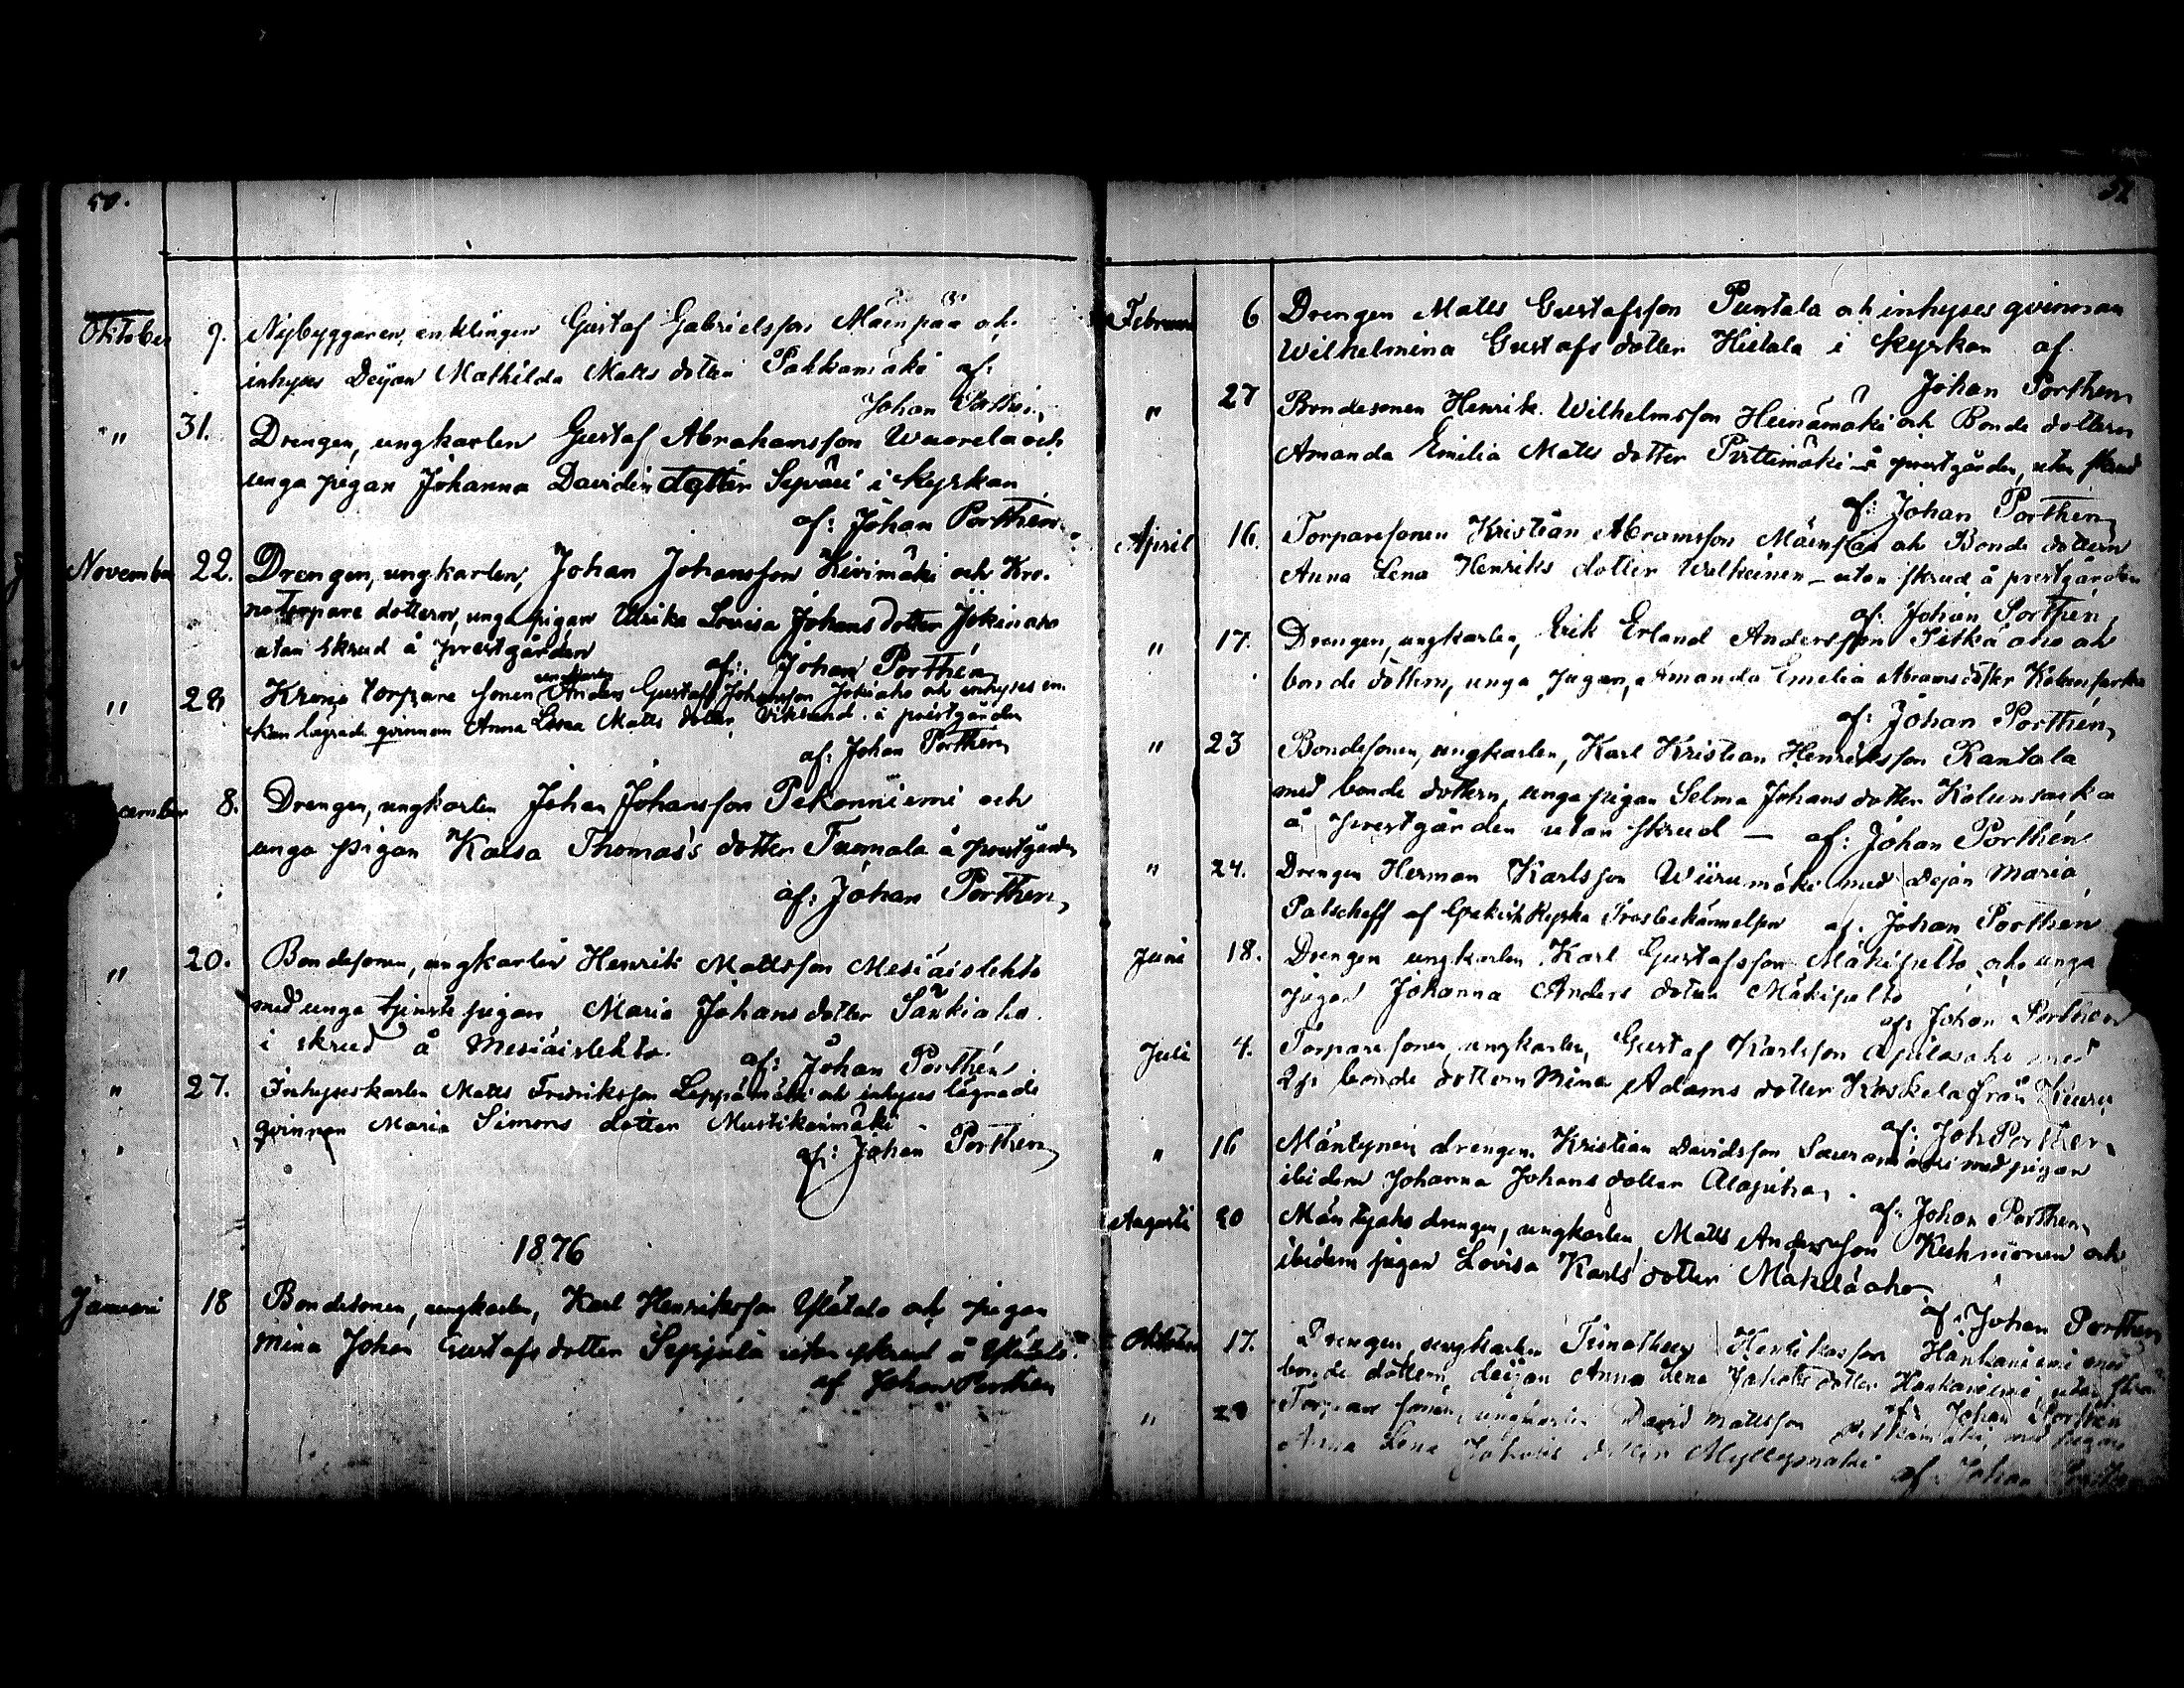 50.
Oktober 9. Nybyggaren, enklingen Gustaf Gabrielsson Mäenpää och
inhyses Dejan Mathilda Matts dotter Pakkamäki af:
Johan Porthén,
" 31. Drengen, ungkarlen Gustaf Abrahamsson Waorela och
unga pigan Johanna Davidin dotter Sepväri i kyrkan
af: Johan Porthén,
November 22. Drengen, ungkarlen, Johan Johansson Kivimäki och Kro-
notorpare dottern, unga pigan Ulrika Lovisa Johans dotter Jokinaho
utan skrud å prestgården
af: Johan Porthén,
" 28 Krono torpare sonen ungkarlen Anders Gustaf Johansson Jokiaho och inhyses en-
kan lägrade qvinnan Anna Leena Matts dotter Viklund å prestgården
af: Johan Porthén,
cember 8. Drengen, ungkarlen Johan Johansson Pekonniemi och
unga pigan Kaisa Thomas's dotter Tuomala å prestgården
af: Johan Porthén,
" 20. Bondesonen, ungkarlen Henrik Mattsson Mesiäislehto
med unga tjenste pigan Maria Johans dotter Särkiaho
i skrud å Mesiäislehto.
af: Johan Porthén
" 27. Inhyseskarlen Matts Fredriksson Leppämäki och inhyses lägrade
qvinnan Maria Simons dotter Mustikanmäki
af: Johan Porthén,
1876
Januari 18 Bondesonen, ungkarlen, Karl Henriksson Ylätalo och pigan
Mina Johan Gustafs dotter Seppälä utan skrud å Ylätalo.
af Johan Porthen
Februari 6 Drengen Matts Gustafsson Puntala och inhyses qvinnan
Wilhelmina Gustafs dotter Hietala i kyrkan af
Johan Porthén,
" 27 Bondesonen Henrik Wilhelmsson Heinämäki och Bonde dottern
Amanda Emilia Matts dotter Pirttimäki å prestgården, utan skrud
af: Johan Porthén,
April 16. Torparesonen Kristian Abramsson Mäenpää och Bonde dottern
Anna Lena Henriks dotter Walkeinen – utan skrud å prestgården
af. Johan Porthén,
" 17. Drengen, ungkarlen, Erik Erland Andersson Pitkäaho och
bonde dottern, unga pigan, Amanda Emelia Abrams dotter
af: Johan Porthén,
" 23 Bondesonen, ungkarlen, Karl Kristian Henriksson Rantala
med bonde dottern, unga pigan Selma Johans dotter Kolunsarka
å prestgården utan skrud – af: Johan Porthén
" 24. Drengen Herman Karlsson Wiirumäki med Dejan Maria
Patscheff af Grekisk Kyrka Trosbekännelsen af. Johan Porthén
Juni 18. Drengen ungkarlen Karl Gustafsson Mäkipelto och unga
pigan Johanna Anders dotter Mäkipelto
af: Johan Porthén
Juli 4. Torparesonen, ungkarlen, Gustaf Karlsson med
bonde dottern Mina Adams dotter Koskela från Kuuru
af: Joh Porthén,
" 16 Mäntynen drengen Kristian Davidsson Sauramäki med pigan
ibidem Johanna Johans dotter Alapiha.
af. Johan Porthén,
Augusti 20 Mäntyaho drengen, ungkarlen Matts Andersson och
ibidem pigan Lovisa Karls dotter Mäkeläaho
af: Johan Porthén
Oktober 17. Drengen, ungkarlen Henriksson Hankaniemi med
bonde dottern, dejan Anna Lena Jakobs dotter Hankaniemi, utan skrud
af: Johan Porthén
" Torpare sonen, ungkarlen David Mattsson med pigan
Anna Lena Jakobs dotter Myllymäki
af. Johan